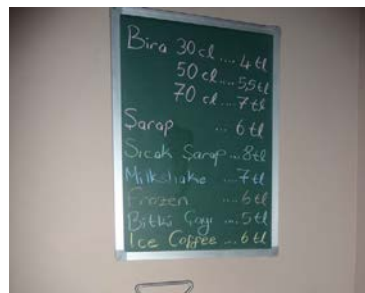 Bira 30 cl .... 4 tl
50 cl .... 5,5 tl
70 cl .... 7 tl
Şarap ... 6 tl
Sıcak Şarap ... 8 tl
Milkshake ... 7 tl
Frozen .... 6 tl
Bitki Çayı ... 5 tl
Ice Coffee ... 6 tl